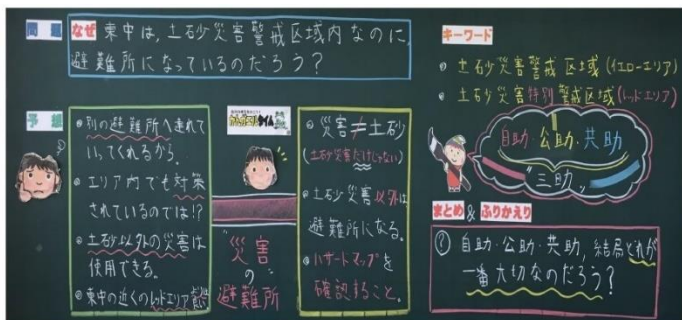 問題
なぜ 東中は,土砂災害警戒区域内なのに,
避難所になっているのだろう?
予想
・別の避難所へ連れて
いってくれるから。
・エリア内でも対策
されているのでは!?
・土砂以外の災害は
使用できる。
・東中の近くのレッドエリア
タイム
災害
の
避難所
・災害≠土砂
(土砂災害だけじゃない)
・土砂災害以外は
避難所になる。
・ハザードマップを
確認すること。
キーワード
・土砂災害警戒区域(イエローエリア)
・土砂災害特別警戒区域(レッドエリア)
自助・公助・共助
"三助"
まとめ&ふりかえり
? 自助・公助・共助,結局どれが
一番大切なのだろう?